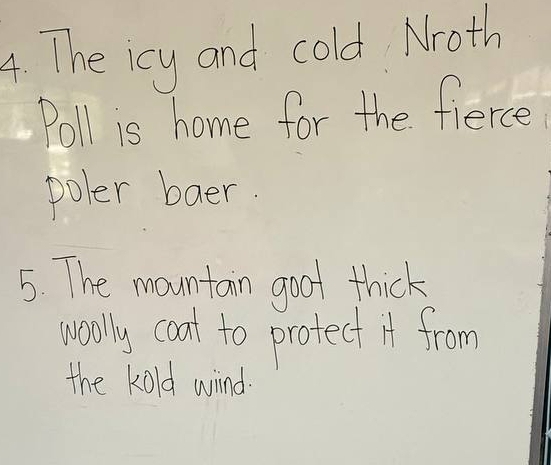 4. The icy and cold Nroth
Poll is home for the fierce
poler baer.
5. The mountain goot thick
woolly coat to protect it from
the kold wiind.